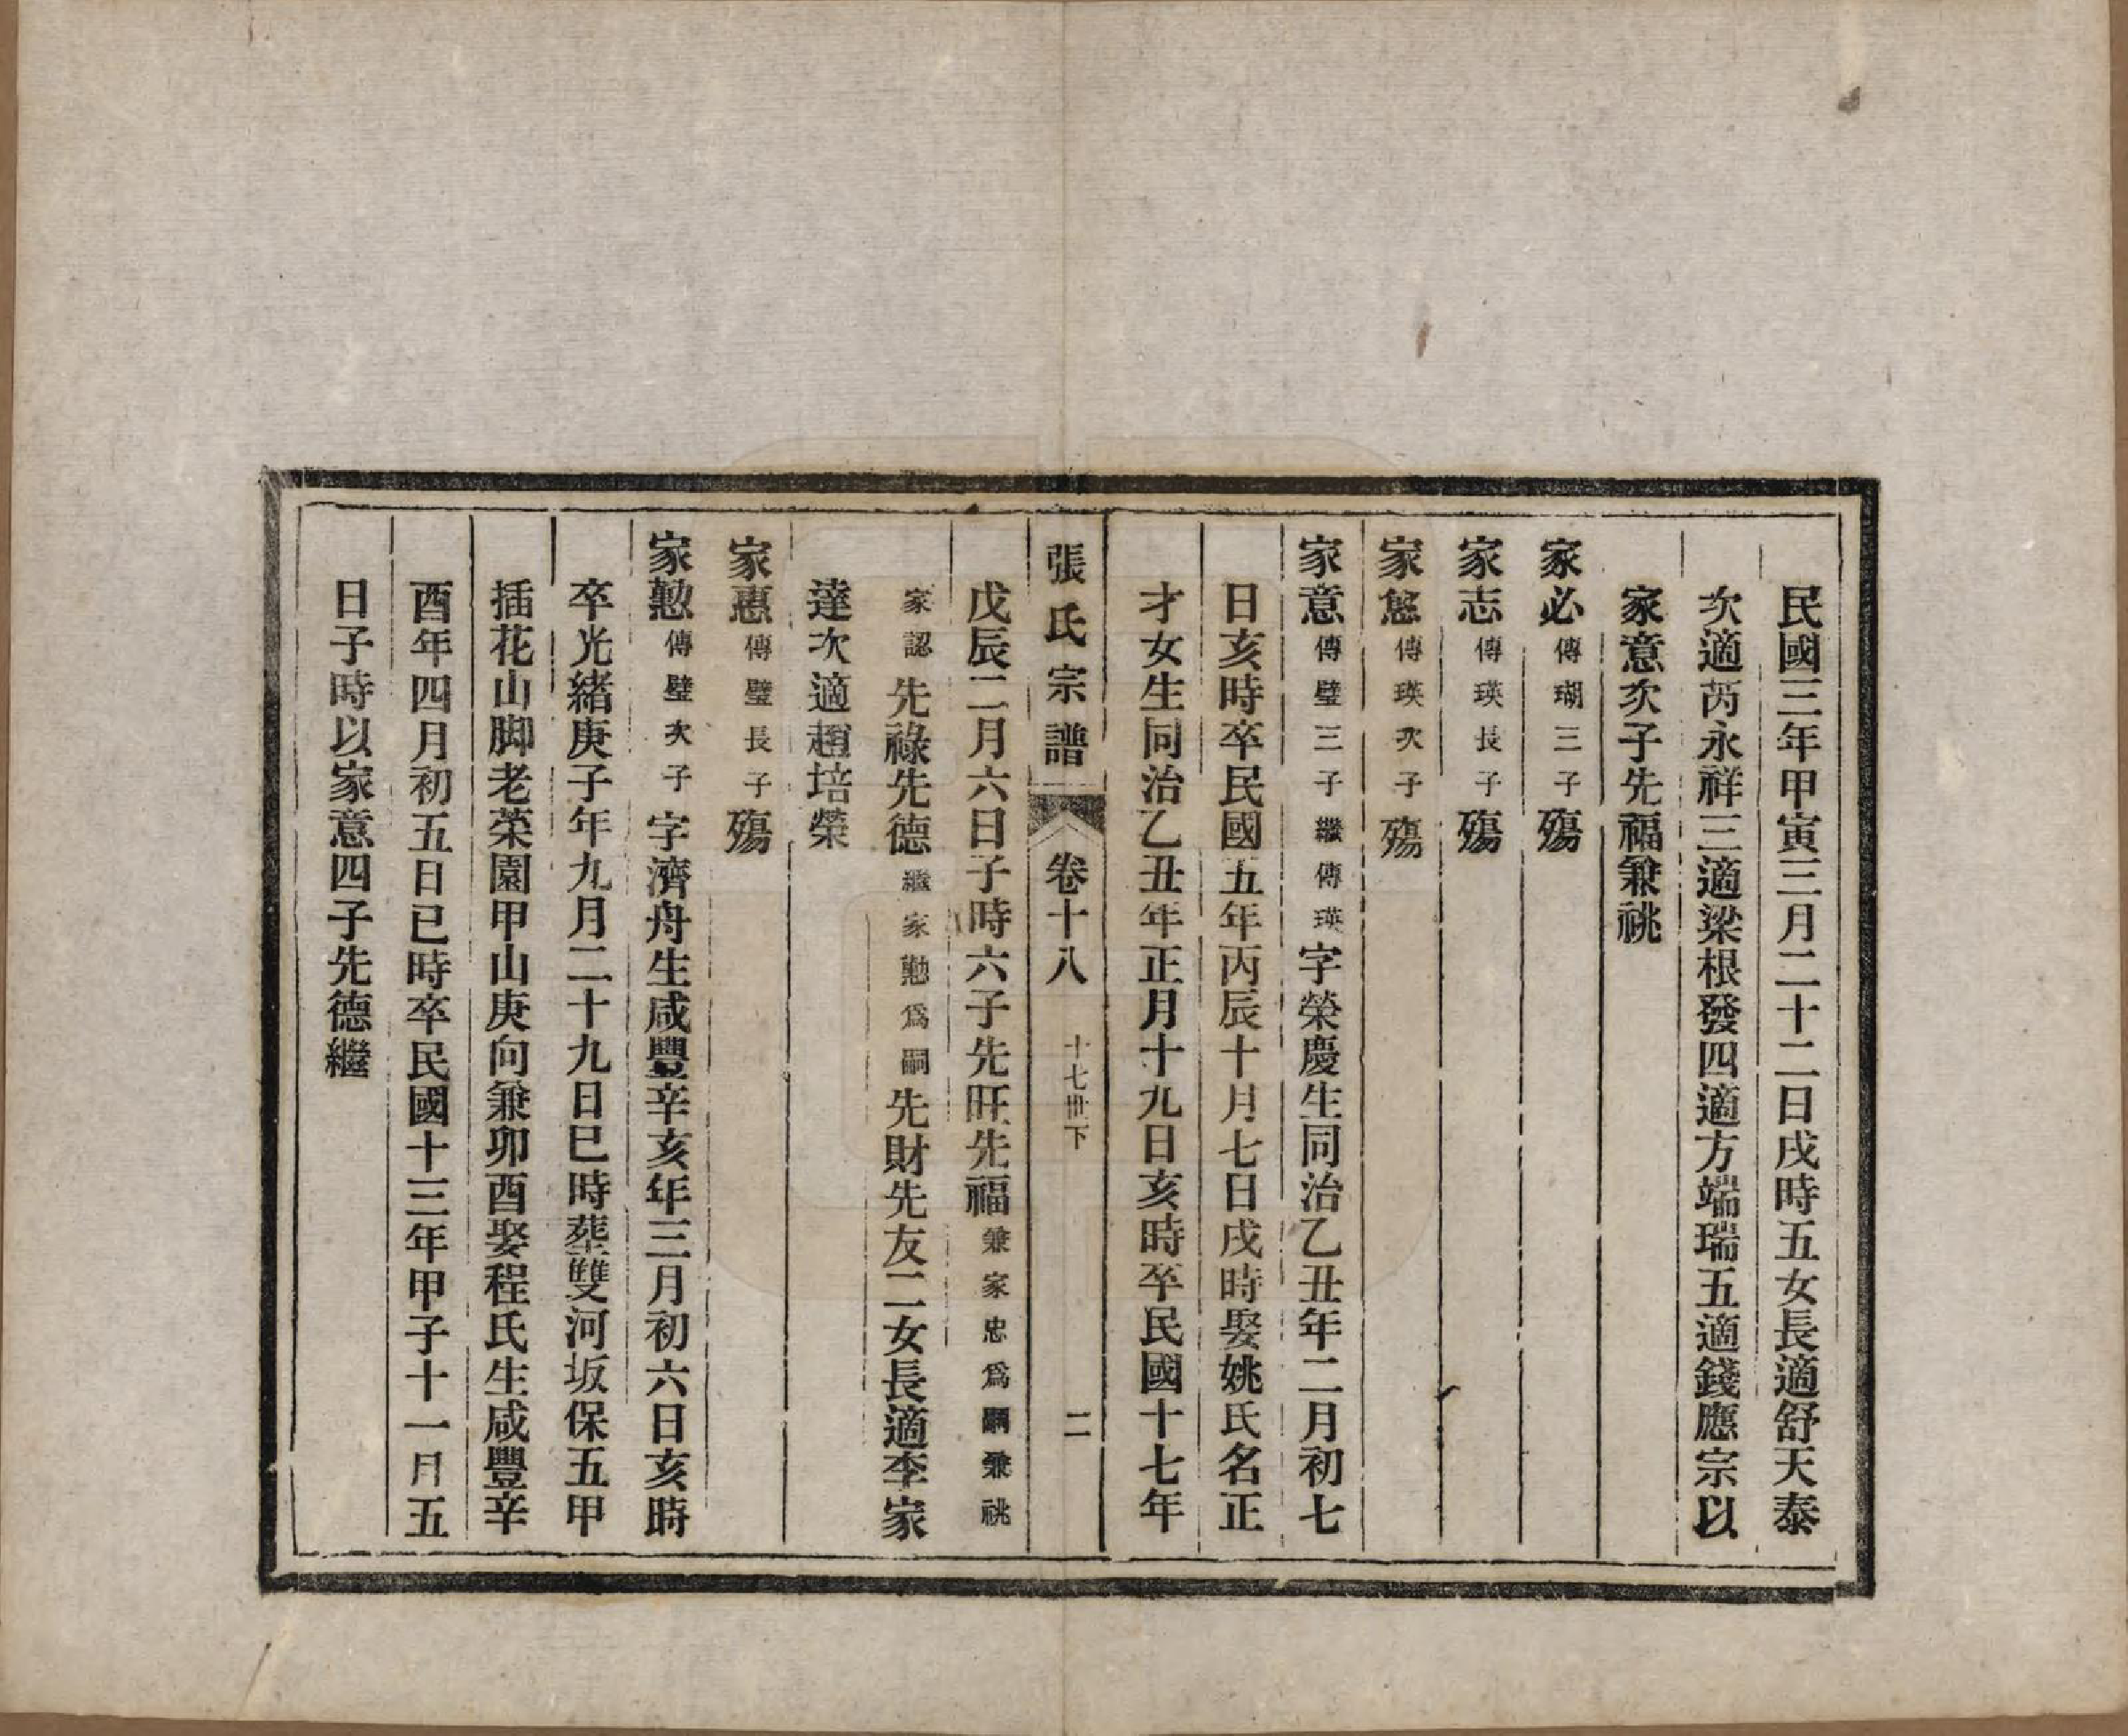 民國三年甲寅三月二十二日戌時五女長適舒天泰
次適芮永祥三適梁根發四適方端瑞五適錢應宗以
家意次子先福兼祧
家必傳瑚三子殤
家志傳瑛長子殤
家㤚傳瑛次子殤
家意傳璧三子繼傳瑛字榮慶生同治乙丑年二月初七
日亥時卒民國五年丙辰十月七日戌時娶姚氏名正
才女生同治乙丑年正月十九日亥時卒民國十七年
張氏宗譜 卷十八 十七世下 二
戊辰二月六日子時六子先旺先福兼家忠爲嗣兼祧
家認先祿先德繼家懃爲嗣先財先友二女長適李家
達次適趙培榮
家惪傳璧長子殤
家懃傳璧次子字濟舟生咸豐辛亥年三月初六日亥時
卒光緒庚子年九月二十九日巳時塟雙河坂保五甲
插花山脚老菜園甲山庚向兼卯酉娶程氏生咸豐辛
酉年四月初五日巳時卒民國十三年甲子十一月五
日子時以家意四子先德繼